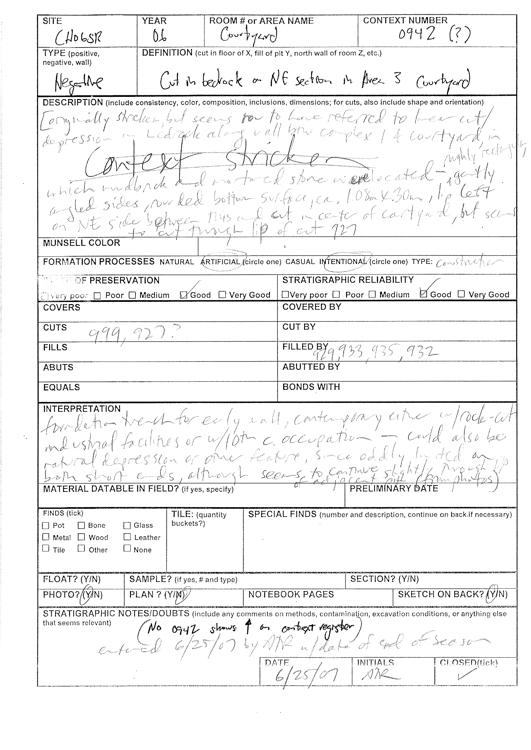 SITE YEAR ROOM # or AREA NAME CONTEXT NUMBER
CH06SR 06 Courtyard 0942 (?)
TYPE (positive, negative, wall) DEFINITION (cut in floor of X, fill of pit Y, north wall of room Z, etc.)
Negative Cut in bedrock on NE section in Area 3 Courtyard
DESCRIPTION (include consistency, color, composition, inclusions, dimensions; for cuts, also include shape and orientation)
[originally stricken but seems to have referred to linear cut/
depression in bedrock along wall complex 1 of courtyard in
Context Stricken roughly rectangular
which mudbrick and mortared stone were located - gently
angled sides, rounded bottom surface, ca. 1.08m x .30m, lip left
on NE side between this and cut in center of courtyard, but seems
to cut through lip of cut 927
MUNSELL COLOR
FORMATION PROCESSES NATURAL ARTIFICIAL (circle one) CASUAL INTENTIONAL (circle one) TYPE: Construction
OF PRESERVATION STRATIGRAPHIC RELIABILITY
Very poor Poor Medium Good Very Good Very poor Poor Medium Good Very Good
COVERS COVERED BY
CUTS 999, 927? CUT BY
FILLS FILLED BY 929, 933, 935, 932
ABUTS ABUTTED BY
EQUALS BONDS WITH
INTERPRETATION
foundation trench for early wall, contemporary either w/rock-cut
industrial facilities or w/10th c. occupation - could also be
natural depression or other feature, since oddly limited on
both short ends, although seems to continue slightly through lip
of adjacent (from photos)
MATERIAL DATABLE IN FIELD? (if yes, specify) PRELIMINARY DATE
FINDS (tick) TILE: (quantity buckets?) SPECIAL FINDS (number and description, continue on back if necessary)
Pot Bone Glass
Metal Wood Leather
Tile Other None
FLOAT? (Y/N) SAMPLE? (if yes, # and type) SECTION? (Y/N)
PHOTO? (Y/N) PLAN? (Y/N) NOTEBOOK PAGES SKETCH ON BACK? (Y/N)
STRATIGRAPHIC NOTES/DOUBTS (include any comments on methods, contamination, excavation conditions, or anything else
that seems relevant) (No 0942 shows ↑ on context register)
entered 6/25/07 by w/date of end of season
DATE INITIALS CLOSED(tick)
6/25/07